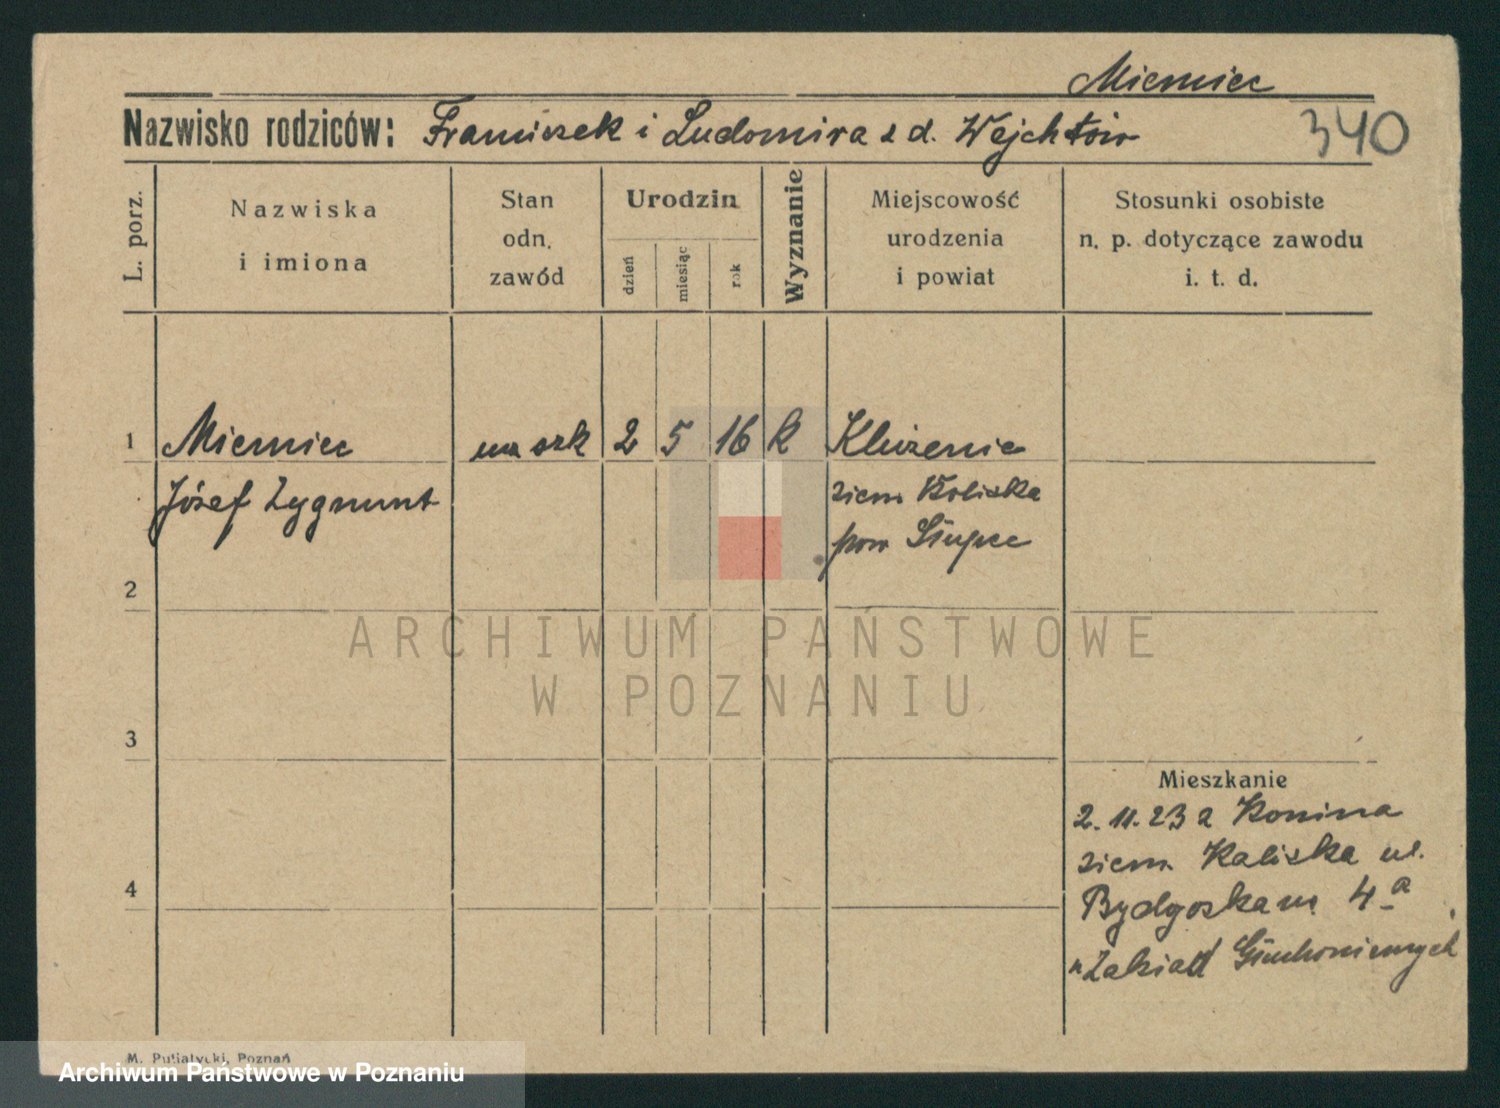 Mierniec
Nazwisko rodziców: Franciszek i Ludomira z d. Wejchtów 340
L. porz.
Nazwiska
i imiona
Stan
odn.
zawód
Urodzin
dzień
miesiąc
rok
Wyznanie
Miejscowość
urodzenia
i powiat
Stosunki osobiste
n. p. dotyczące zawodu
i. t. d.
1 Mierniec szk 2 5 16 k
Józef Zygmunt ziem. Kaliska
pow Słupce
2
ARCHIWUM PAŃSTWOWE
W POZNANIU
3
Mieszkanie
2. 11. 23 z Konina
ziem. Kaliska ul.
4 Bydgoska 4 a
Zakład Głuchoniemych
M. Putiatycki, Poznań
Archiwum Państwowe w Poznaniu